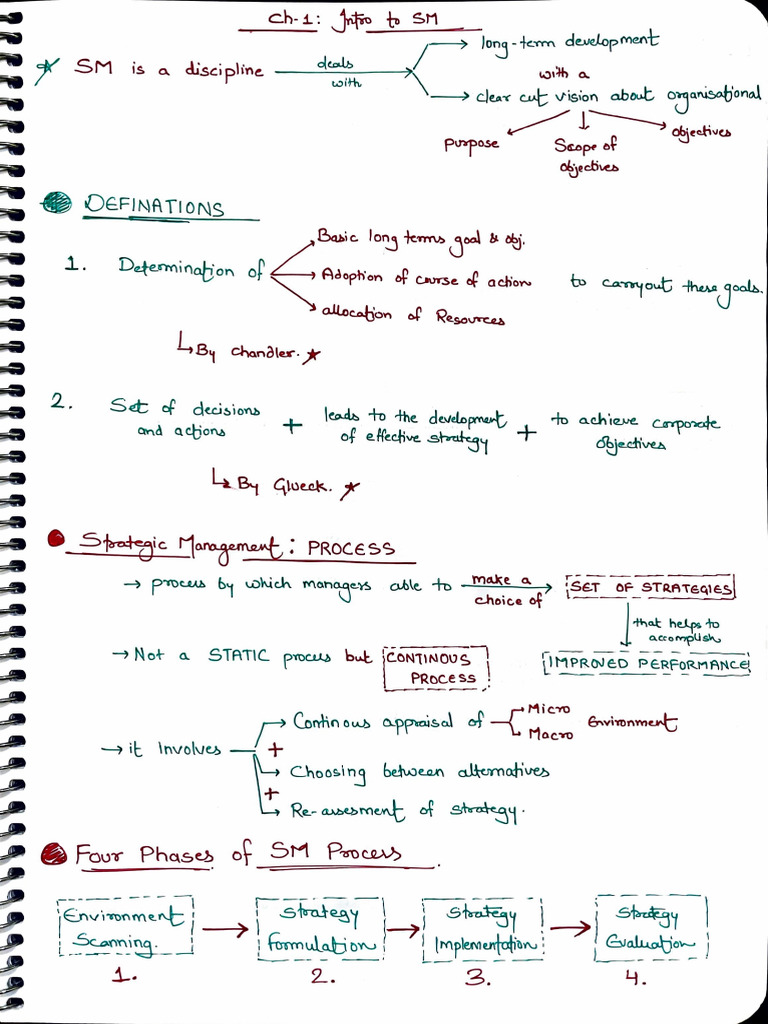 Ch-1: Intro to SM
SM is a discipline deals with
long-term development
with a
clear cut vision about organisational
purpose
Scope of
objectives
objectives
DEFINATIONS
1. Determination of
Basic long terms goal & obj.
Adoption of course of action
allocation of Resources
to carryout these goals.
By Chandler.
2. Set of decisions
and actions
+
leads to the development
of effective strategy
+
to achieve corporate
objectives
By Glueck.
Strategic Management: PROCESS
process by which managers able to make a
choice of
SET OF STRATEGIES
that helps to
accomplish
IMPROVED PERFORMANCE
Not a STATIC process but CONTINOUS
PROCESS
it involves
Continous appraisal of Micro
Macro
Environment
+
Choosing between alternatives
+
Re-assesment of strategy.
Four Phases of SM Process
Environment
Scanning.
1.
Strategy
Formulation
2.
Strategy
Implementation
3.
Strategy
Evaluation
4.